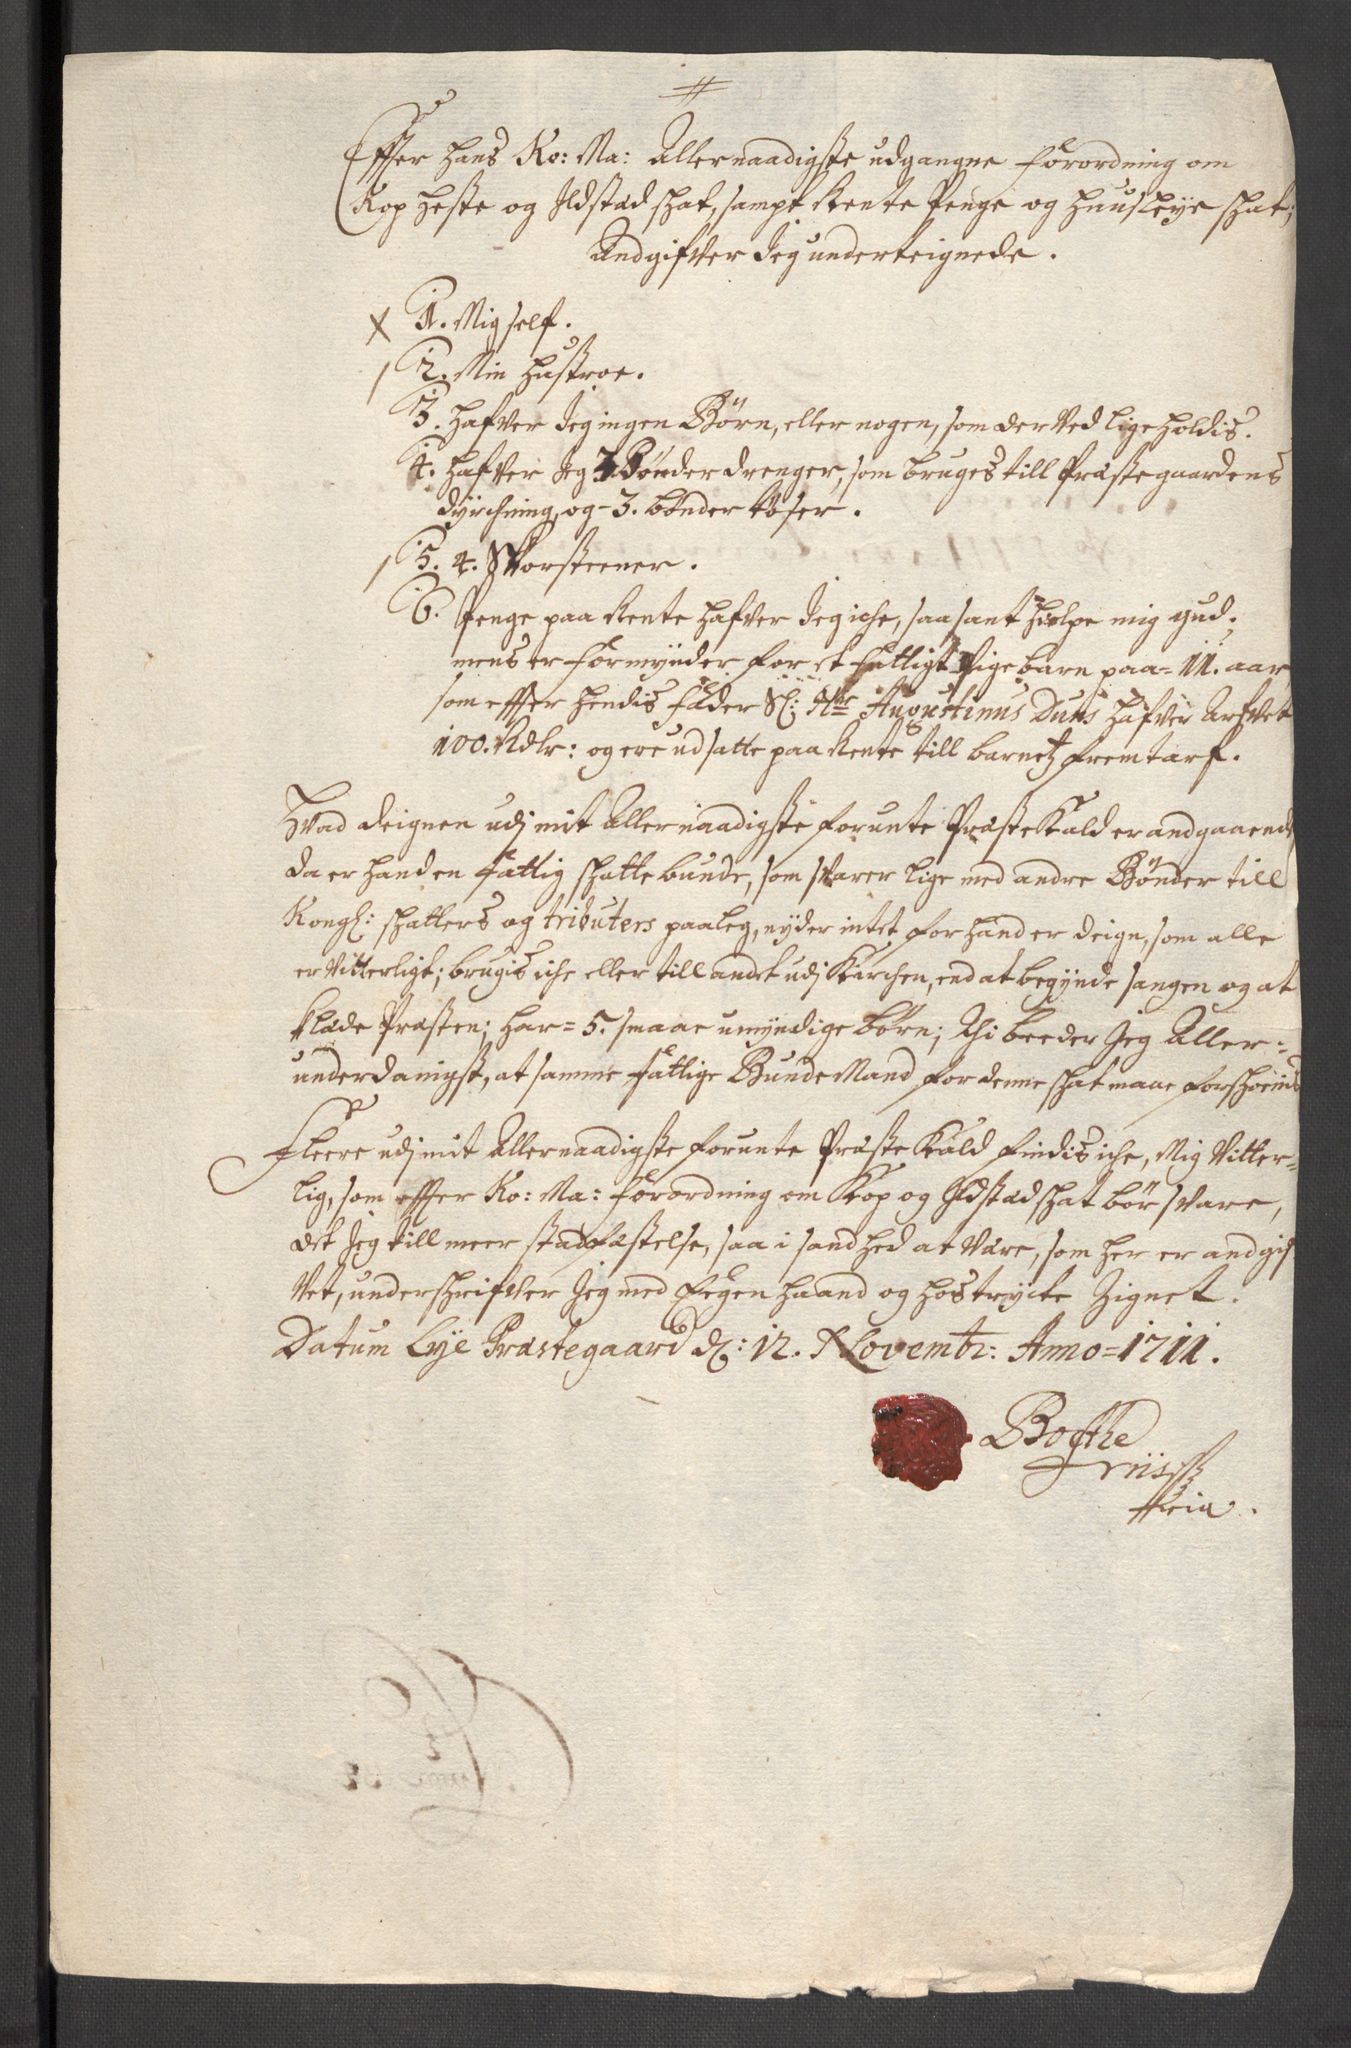 Effter Hans Ko: Ma: Allernaadigste udgangne forordning om
Kop Heste og Ildstad skat, sampt Rente Penge og Huusleye skat;
Andgifver Jeg underteignede.
X 1. Mig self.
/ 2. Min Hustroe.
3. Hafver Jeg ingen Børn, eller nogen, som der ved lige holdis.
4. Hafver Jeg 3. Bønder drenger, som bruges till Præstegaardens
dyrchning, og - 3. bønder töser.
/ 5. 4. Skorsteener.
6. Penge paa Rente hafver Jeg iche, saa sant hielpe mig gud;
mens er formynder for et fattigt Pige barn paa = 11. aar
som effter hendis fader Sl: Hr Augustinus Duns hafver Arfvet
100. Rdlr: og ere udsatte paa Rente till barnetz fremtarf.
Hvad deignen udj mit Allernaadigste forunte Præste Kald er andgaaende
da er hand en fattig skatte bunde, som svarer lige med andre Bønder till
Kongl: skatters og tributers paaleg, nyder intet for hand er deign, som alle
er vitterligt; brugis iche eller till andet udj Kirchen, end at begynde sangen og at
klæde Præsten; har = 5. smaae umyndige børn; Thi beeder Jeg Aller=
underdanigst, at samme fattige Bunde Mand for denne skat maae forskoenis
Fleere udj mit Allernaadigste forunte Præste Kald findis iche, Mig Vitter=
lig, som effter Ko: Ma: forordning om Kop og Ildstæd skat bør svare,
det Jeg till meer stadfæstelse, saa i sandhed at være, som her er andgif
vet, underschrifver Jeg med Eegen haand og hostrycte Zignet.
Datum Lye Præstegaard d: 12. Novembr: Anno = 1711.
Boethe